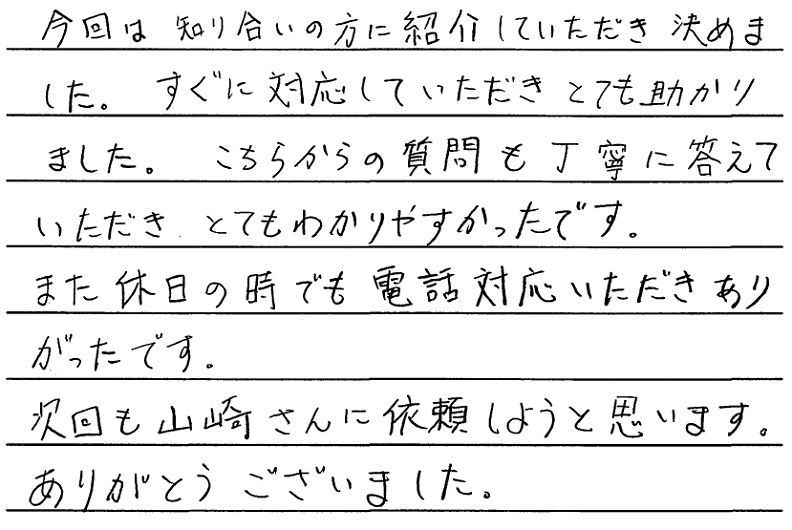 今回は 知り合いの方に紹介していただき 決めま
した。 すぐに対応していただき とても助かり
ました。 こちらからの質問も丁寧に答えて
いただき とてもわかりやすかったです。
また休日の時でも電話対応いただきあり
がったです。
次回も山崎さんに依頼しようと思います。
ありがとうございました。